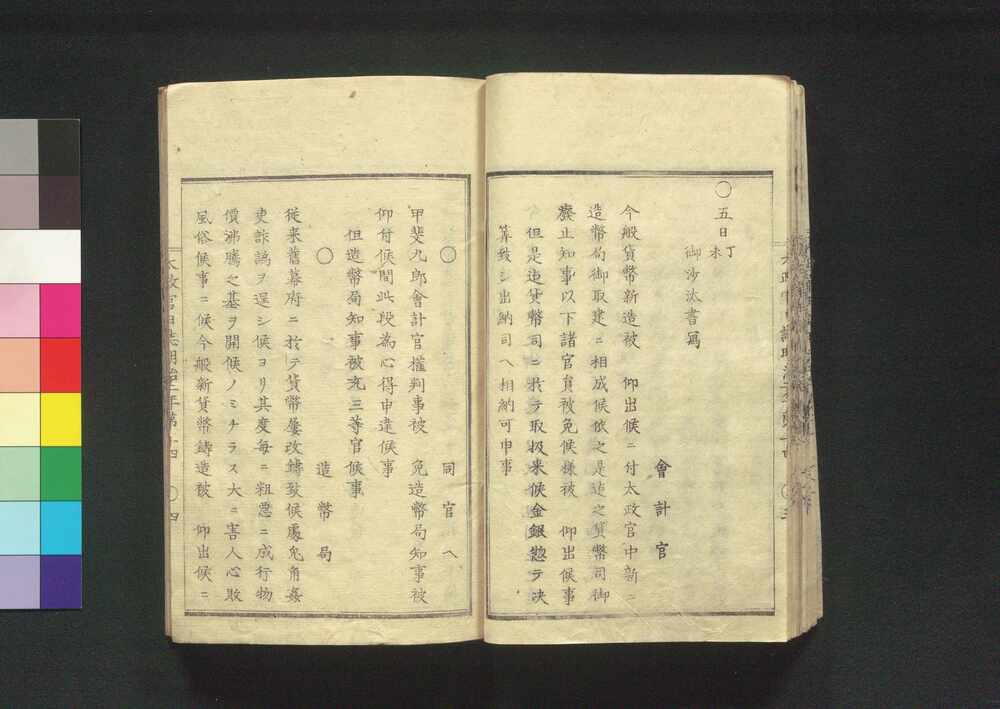 〇五日丁未
御沙汰書寫
會計官
今般貨幣新造被 仰出候ニ付太政官中新ニ
造幣局御取建ニ相成候依之是迄之貨幣司御
廢止知事以下諸官員被免候樣被 仰出候事
但是迄貨幣司ニ於テ取扱来候金銀惣テ决
算致シ出納司ヘ相納可申事
〇
同官ヘ
甲斐九郎會計官權判事被 免造幣局知事被
仰付候間此段為心得申達候事
但造幣局知事被充三等官候事
〇
造幣局
従来舊幕府ニ於テ貨幣屡改鑄致候處兎角姦
吏詐譌ヲ逞シ候ヨリ其度每ニ粗悪ニ成行物
價沸騰之基ヲ開候ノミナラス大ニ害人心敗
風俗候事ニ候今般新貨幣鑄造被 仰出候ニ
太政官日誌明治二年第十四 〇四